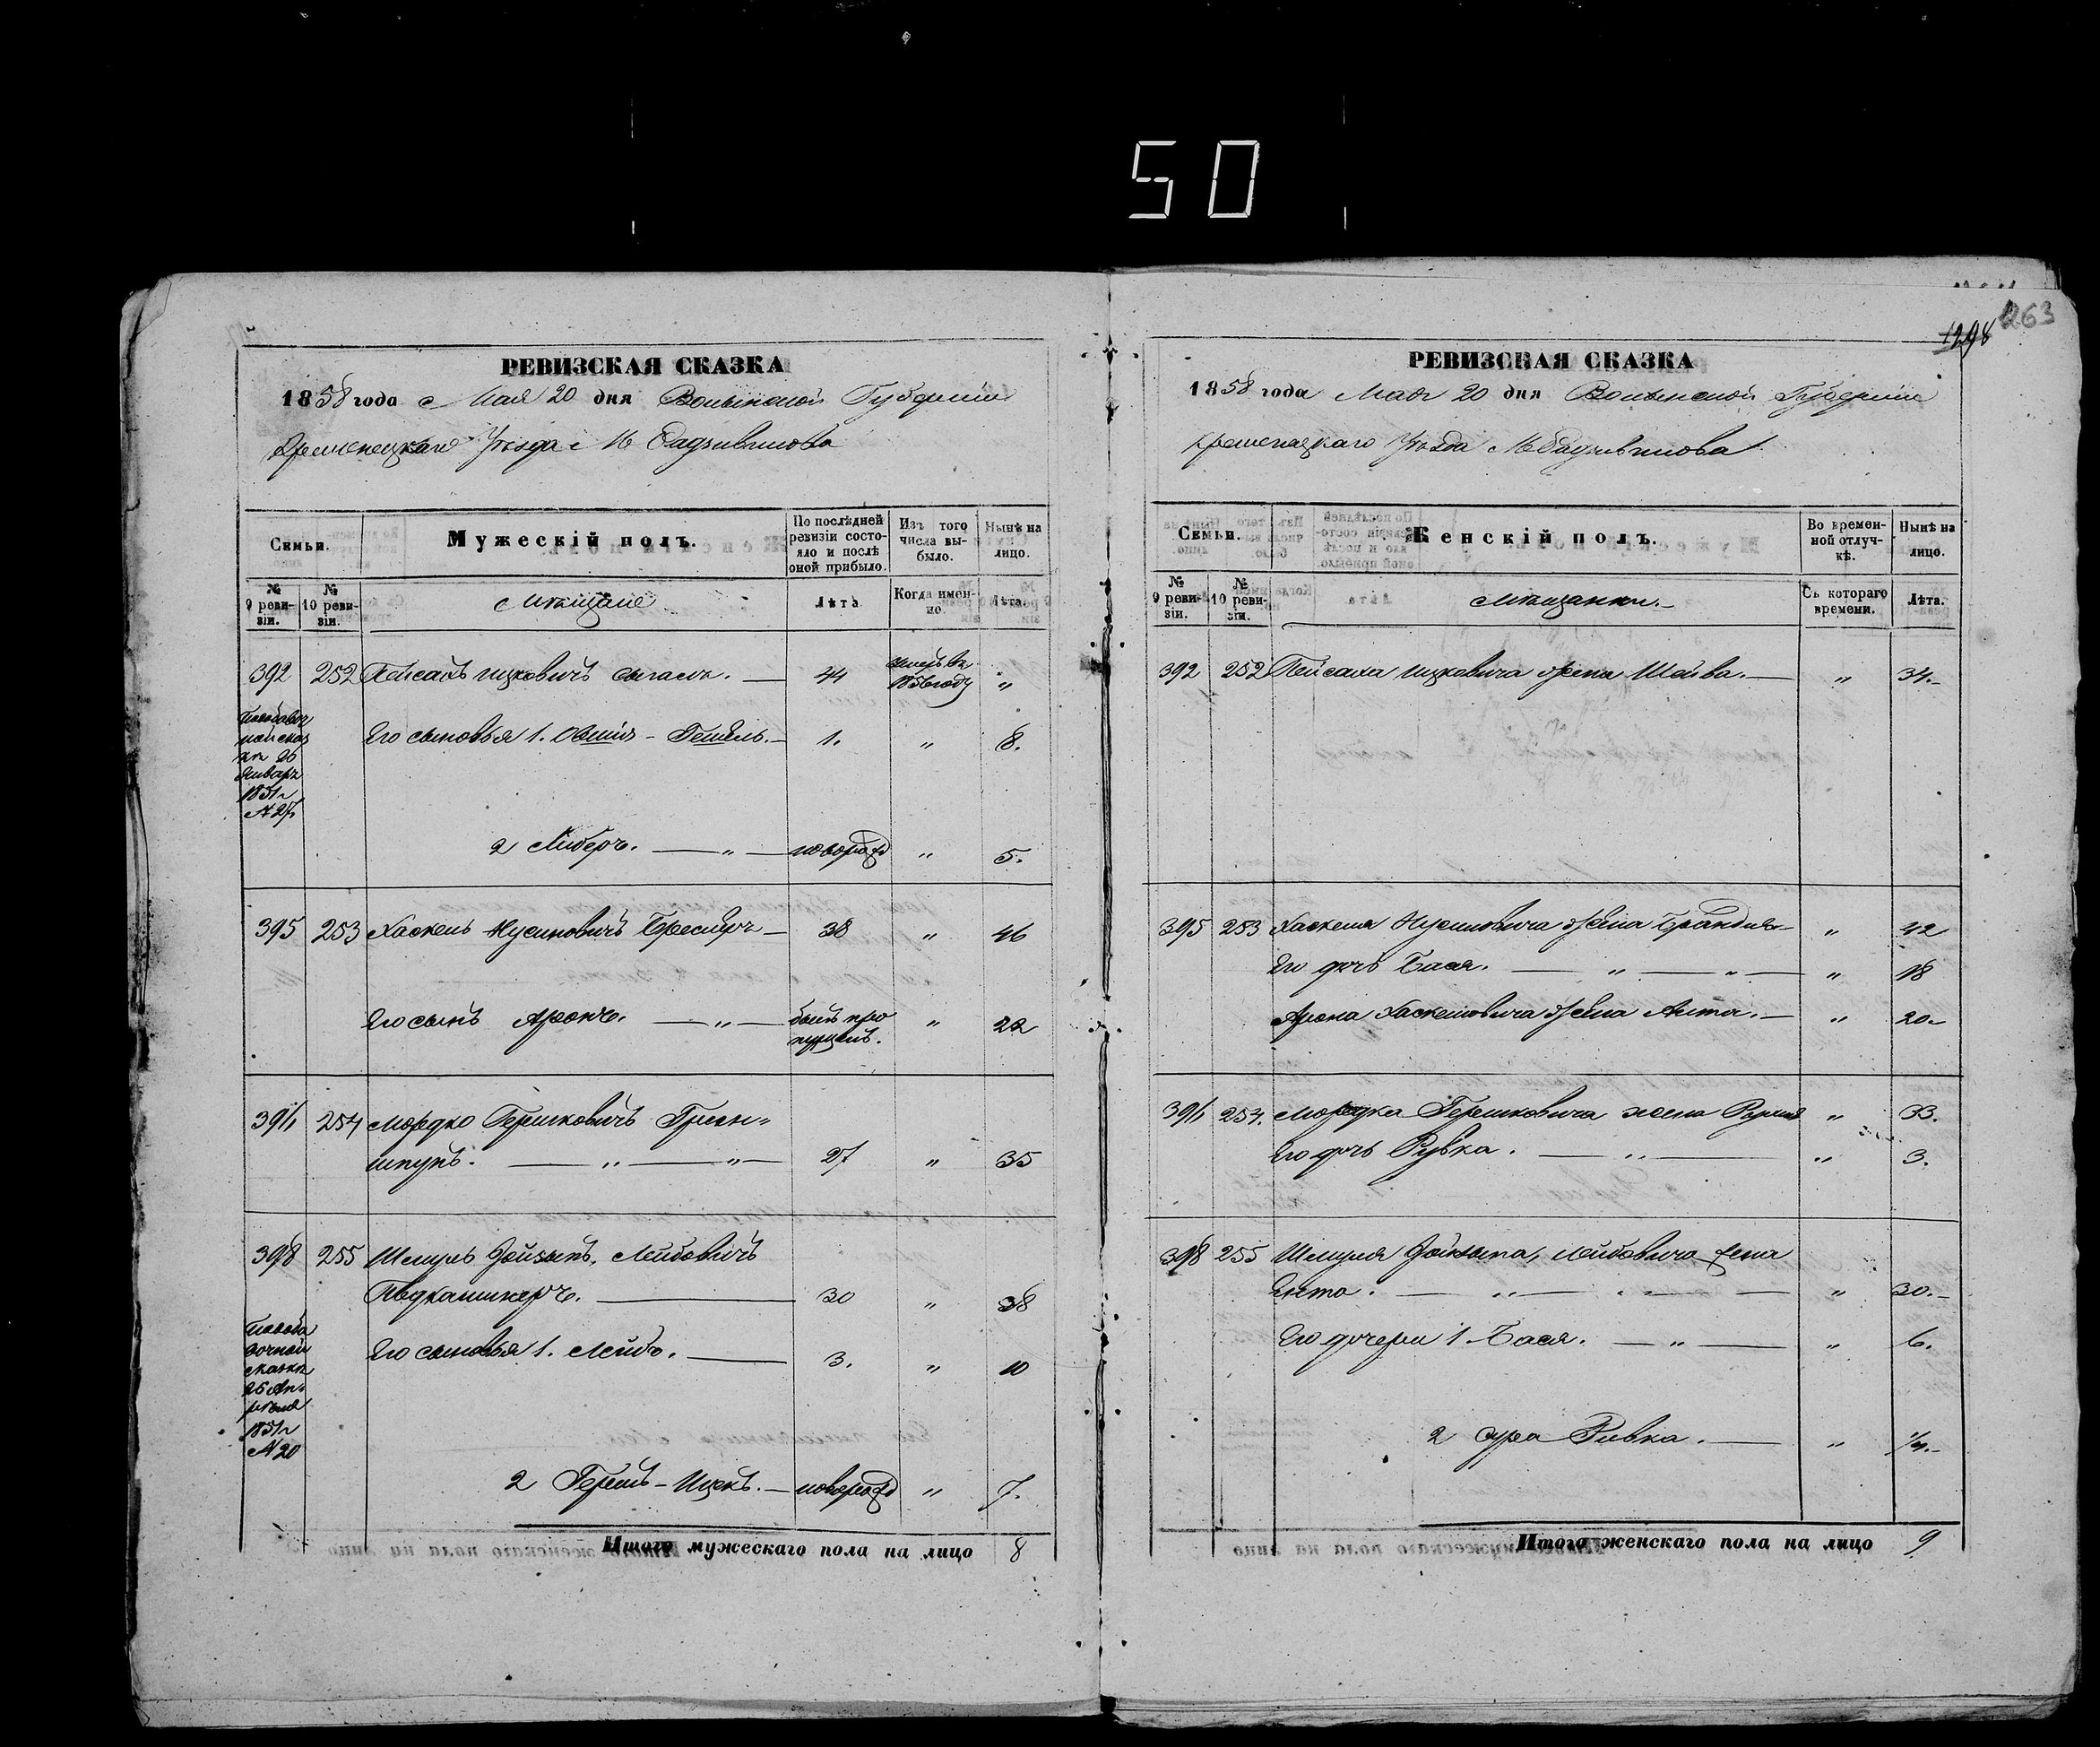 50
263
1298
РЕВИЗСКАЯ СКАЗКА
1858 года Мая 20 дня Волынской Губернии
Кременецкаго Уѣзда М Радзивилова
Семьи.
Мужескій полъ.
По послѣдней ревизіи состояло и послѣ оной прибыло.
Изъ того числа выбыло.
Нынѣ на лицо.
№ 9 ревизіи.
№ 10 ревизіи.
Мѣщане
Лѣта
Когда именно.
Лѣта.
392 252 Пейсахъ Ицковичъ — 44 1856 году "
Его сыновья 1. - Гешель. — 1. " 8.
январь
1851 г
2 Либеръ. — " — новорожд " 5.
395 253 Хаскель Нусиновичъ — 38 " 46
Его сынъ Аронъ. — " — былъ про " 22
пущенъ.
254 Мордко Гершковичъ Грин-
шпунъ. — " — " — 27 " 35
398 255 Шмуль Зойвыль, Лейбовичъ
— 30 " 38
Его сыновья 1. Лейбъ. — 3. " 10
сказкѣ
25 Ап-
рѣля
1851 г
№ 20
2 Гершъ-Ицекъ. — новорожд " 7.
Итого мужескаго пола на лицо 8
РЕВИЗСКАЯ СКАЗКА
1858 года Мая 20 дня Волынской Губерніи
Кременецкаго Уѣзда М Радзивилова
Семьи.
Женскій полъ.
Во временной отлучкѣ.
Нынѣ на лицо.
№ 9 ревизіи.
№ 10 ревизіи.
Мѣщанки.
Съ котораго времени.
Лѣта.
392 252 Пейсаха Ицковича жена Шейва. — " 34.
395 253 Хаскеля Нусиновича жена — " 42
Его дочь Бася. — " — " — " 18
Арона Хаскелевича жена — " 20
254. Мордка Гершковича жена " 33.
Его дочь Рувка. — " — " 3.
398 255 Шмуля Лейбовича жена
Ента. — " — " 30.
Его дочери 1. Бася. — " — " 6.
2 Сура Ривка. — "
Итого женскаго пола на лицо 9